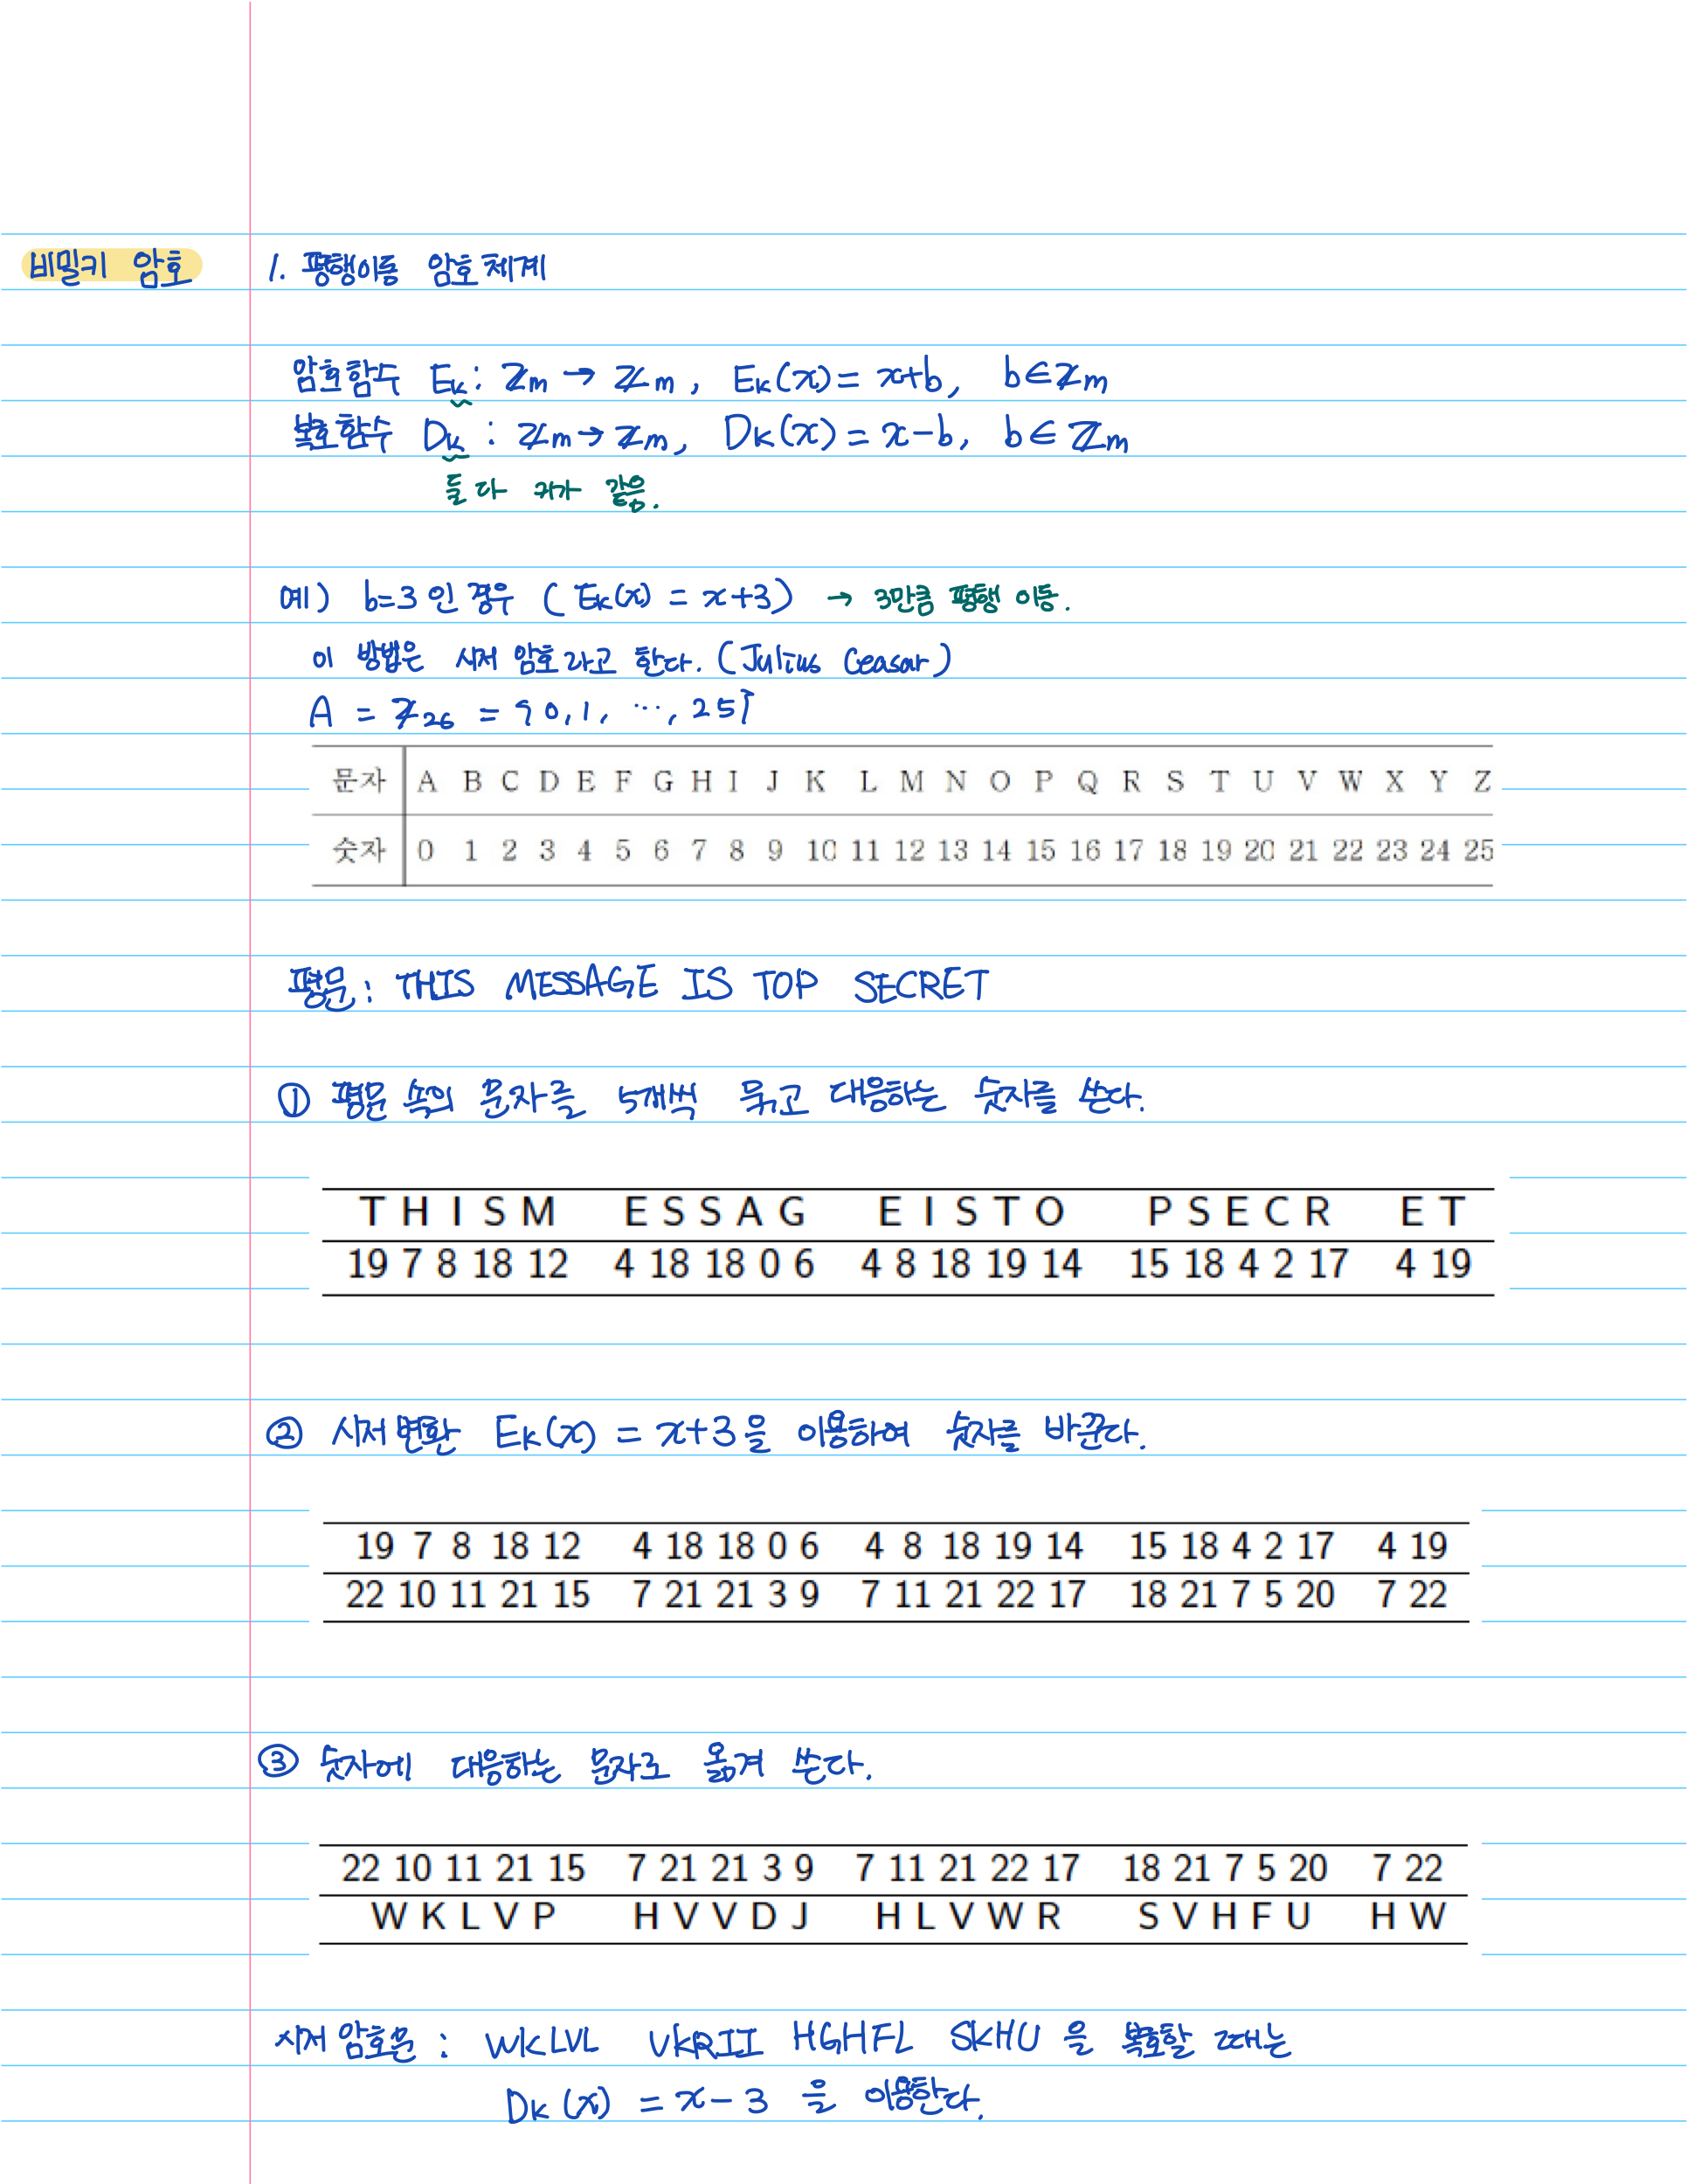 비밀키 암호
1. 평행이동 암호체계
암호함수 Eₖ: ℤₘ → ℤₘ, Eₖ(x) = x+b, b∈ℤₘ
복호함수 Dₖ: ℤₘ → ℤₘ, Dₖ(x) = x-b, b∈ℤₘ
둘 다 키가 같음.
예) b=3인 경우 (Eₖ(x) = x+3) → 3만큼 평행 이동.
이 방법은 시저 암호라고 한다. (Julius Ceasar)
A = ℤ₂₆ = {0, 1, ⋯, 25}
문자 A B C D E F G H I J K L M N O P Q R S T U V W X Y Z
숫자 0 1 2 3 4 5 6 7 8 9 10 11 12 13 14 15 16 17 18 19 20 21 22 23 24 25
평문: THIS MESSAGE IS TOP SECRET
① 평문 속의 문자를 5개씩 묶고 대응하는 숫자를 쓴다.
T H I S M E S S A G E I S T O P S E C R E T
19 7 8 18 12 4 18 18 0 6 4 8 18 19 14 15 18 4 2 17 4 19
② 시저변환 Eₖ(x) = x+3을 이용하여 숫자를 바꾼다.
19 7 8 18 12 4 18 18 0 6 4 8 18 19 14 15 18 4 2 17 4 19
22 10 11 21 15 7 21 21 3 9 7 11 21 22 17 18 21 7 5 20 7 22
③ 숫자에 대응하는 문자로 옮겨 쓴다.
22 10 11 21 15 7 21 21 3 9 7 11 21 22 17 18 21 7 5 20 7 22
W K L V P H V V D J H L V W R S V H F U H W
시저 암호문: WKLVL VKRII HGHFL SKHU을 복호할 때는
Dₖ(x) = x-3 을 이용한다.